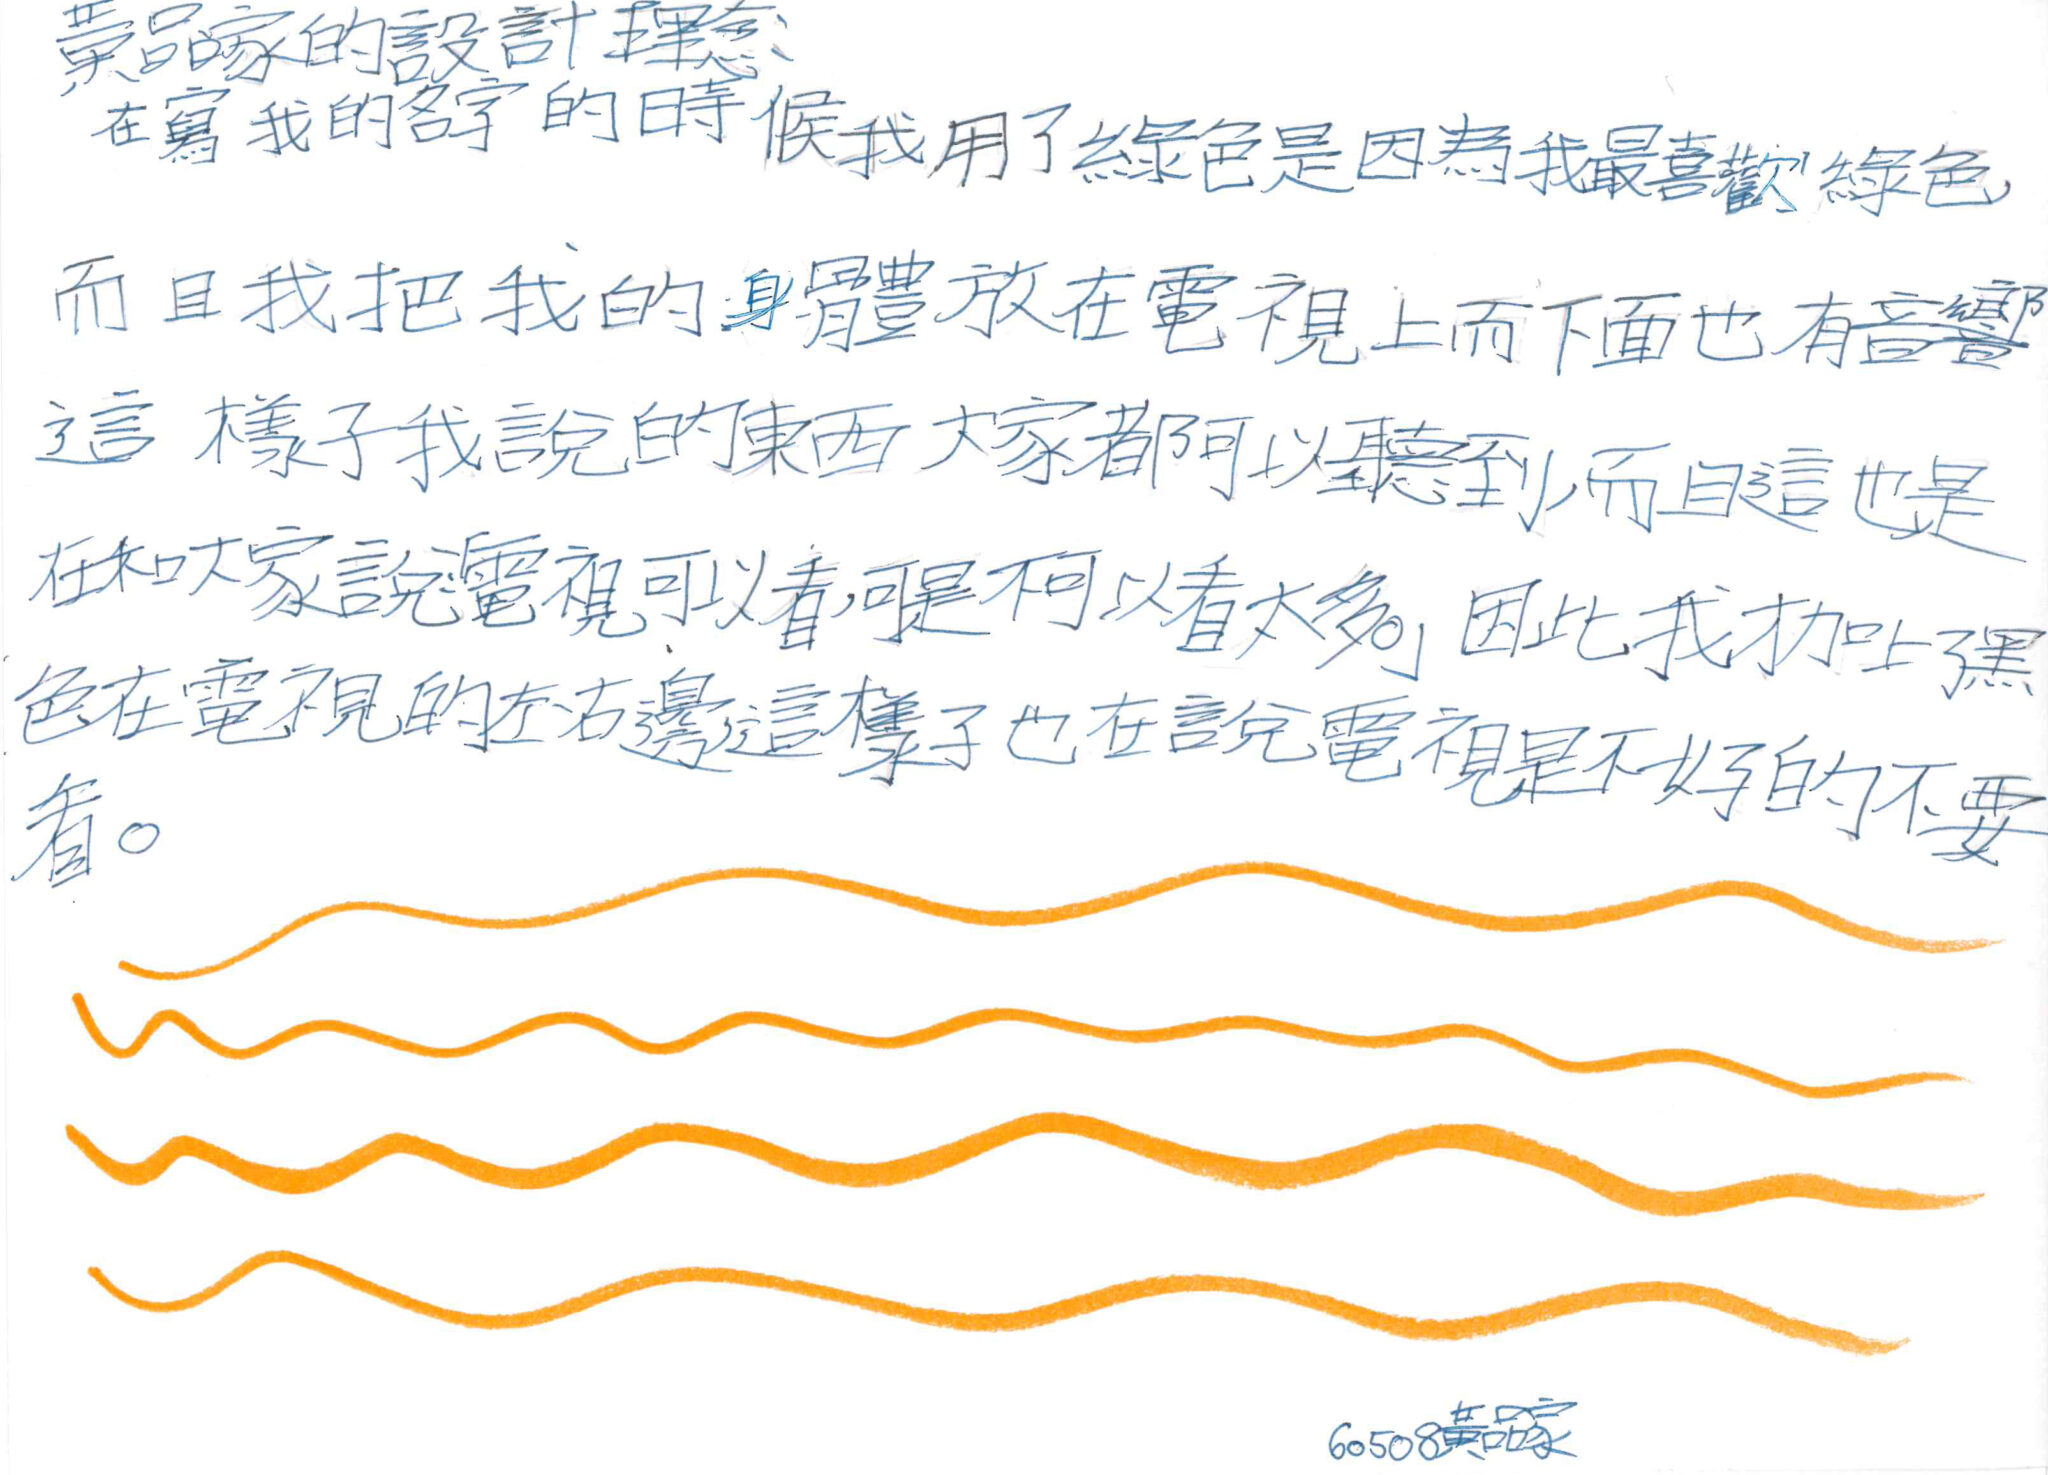 黃品家的設計理念
在寫我的名字的時候我用了綠色是因為我最喜歡綠色,
而且我把我的身體放在電視上而下面也有音響
這樣子我說的東西大家都可以聽到,而且這也是
在和大家說「電視可以看,可是不可以看太多。」因此我才加上了黑
色在電視的左右邊這樣子也在說電視是不好的不要
看。
60508黃品家